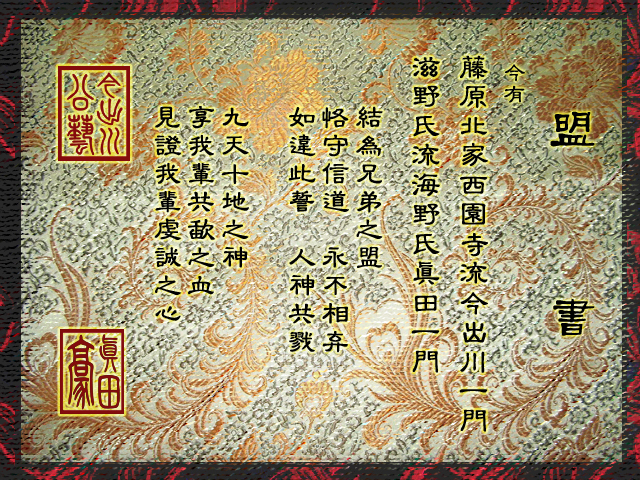 盟書
今有
藤原北家西園寺流今出川一門
滋野氏流海野氏眞田一門
結為兄弟之盟
恪守信道 永不相弃
如違此誓 人神共戮
九天十地之神
享我輩共歃之血
見證我輩虔誠之心
今出川
公藝
眞田